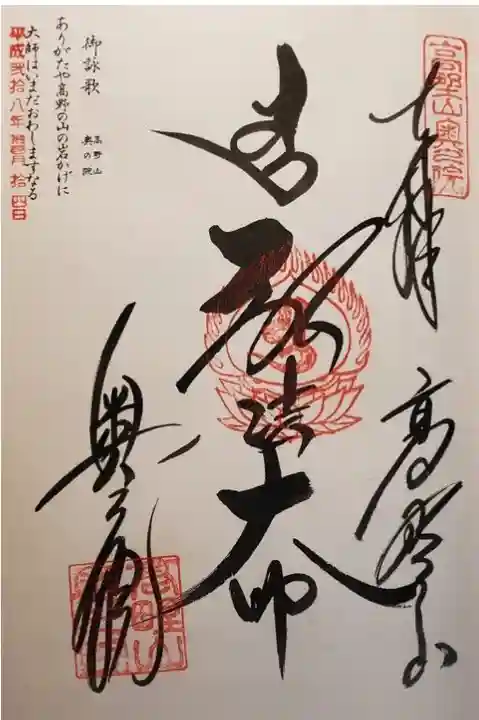 高野山奥之院
奉拝 高野山
弘法大師
奥之院
御詠歌
高野山
奥の院
ありがたや高野の山の岩かげに
大師はいまだおわしますなる
平成弐拾八年 月 拾四日